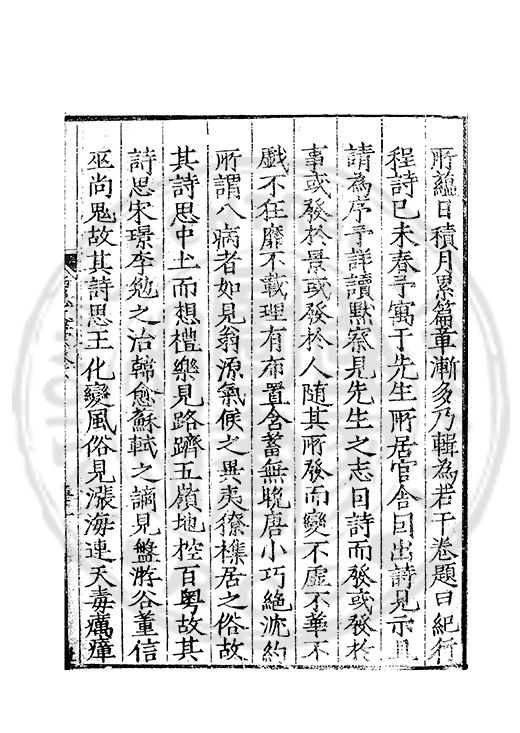 所蘊日積月累篇章漸多乃輯為若干卷題曰紀行
程詩已未春予寓于先生所居官舍因出詩見示且
請為序予詳讀默察見先生之志因詩而發或發於
事或發於景或發於人随其所發而變不虛不華不
戯不狂靡不載理有布置含蓄無晚唐小巧絶沈約
所謂八病者如見翁源氣候之異夷獠襍居之俗故
其詩思中土而想禮樂見路躋五嶺地控百粤故其
詩思宋璟李勉之治韓愈蘇軾之謫見盤谷董信
巫尚鬼故其詩思王化變風俗見漲海連天毒癘瘴